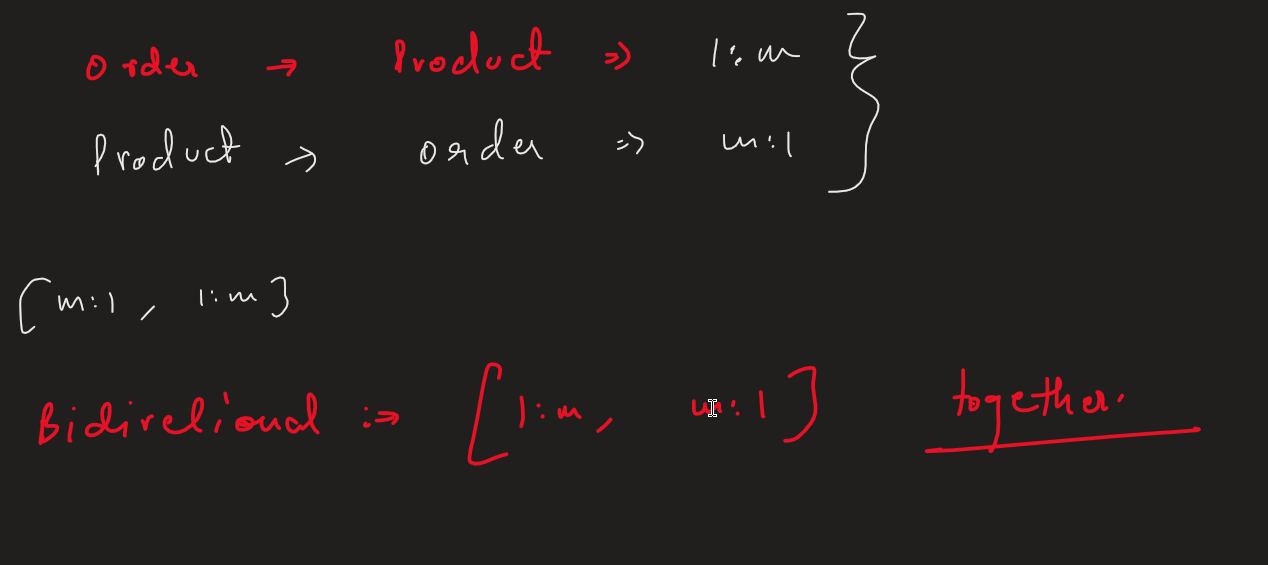 Order → Product ⇒ 1:m
Product → order ⇒ m:1
[m:1, 1:m]
Bidirelional :⇒ [1:m, m:1] together.